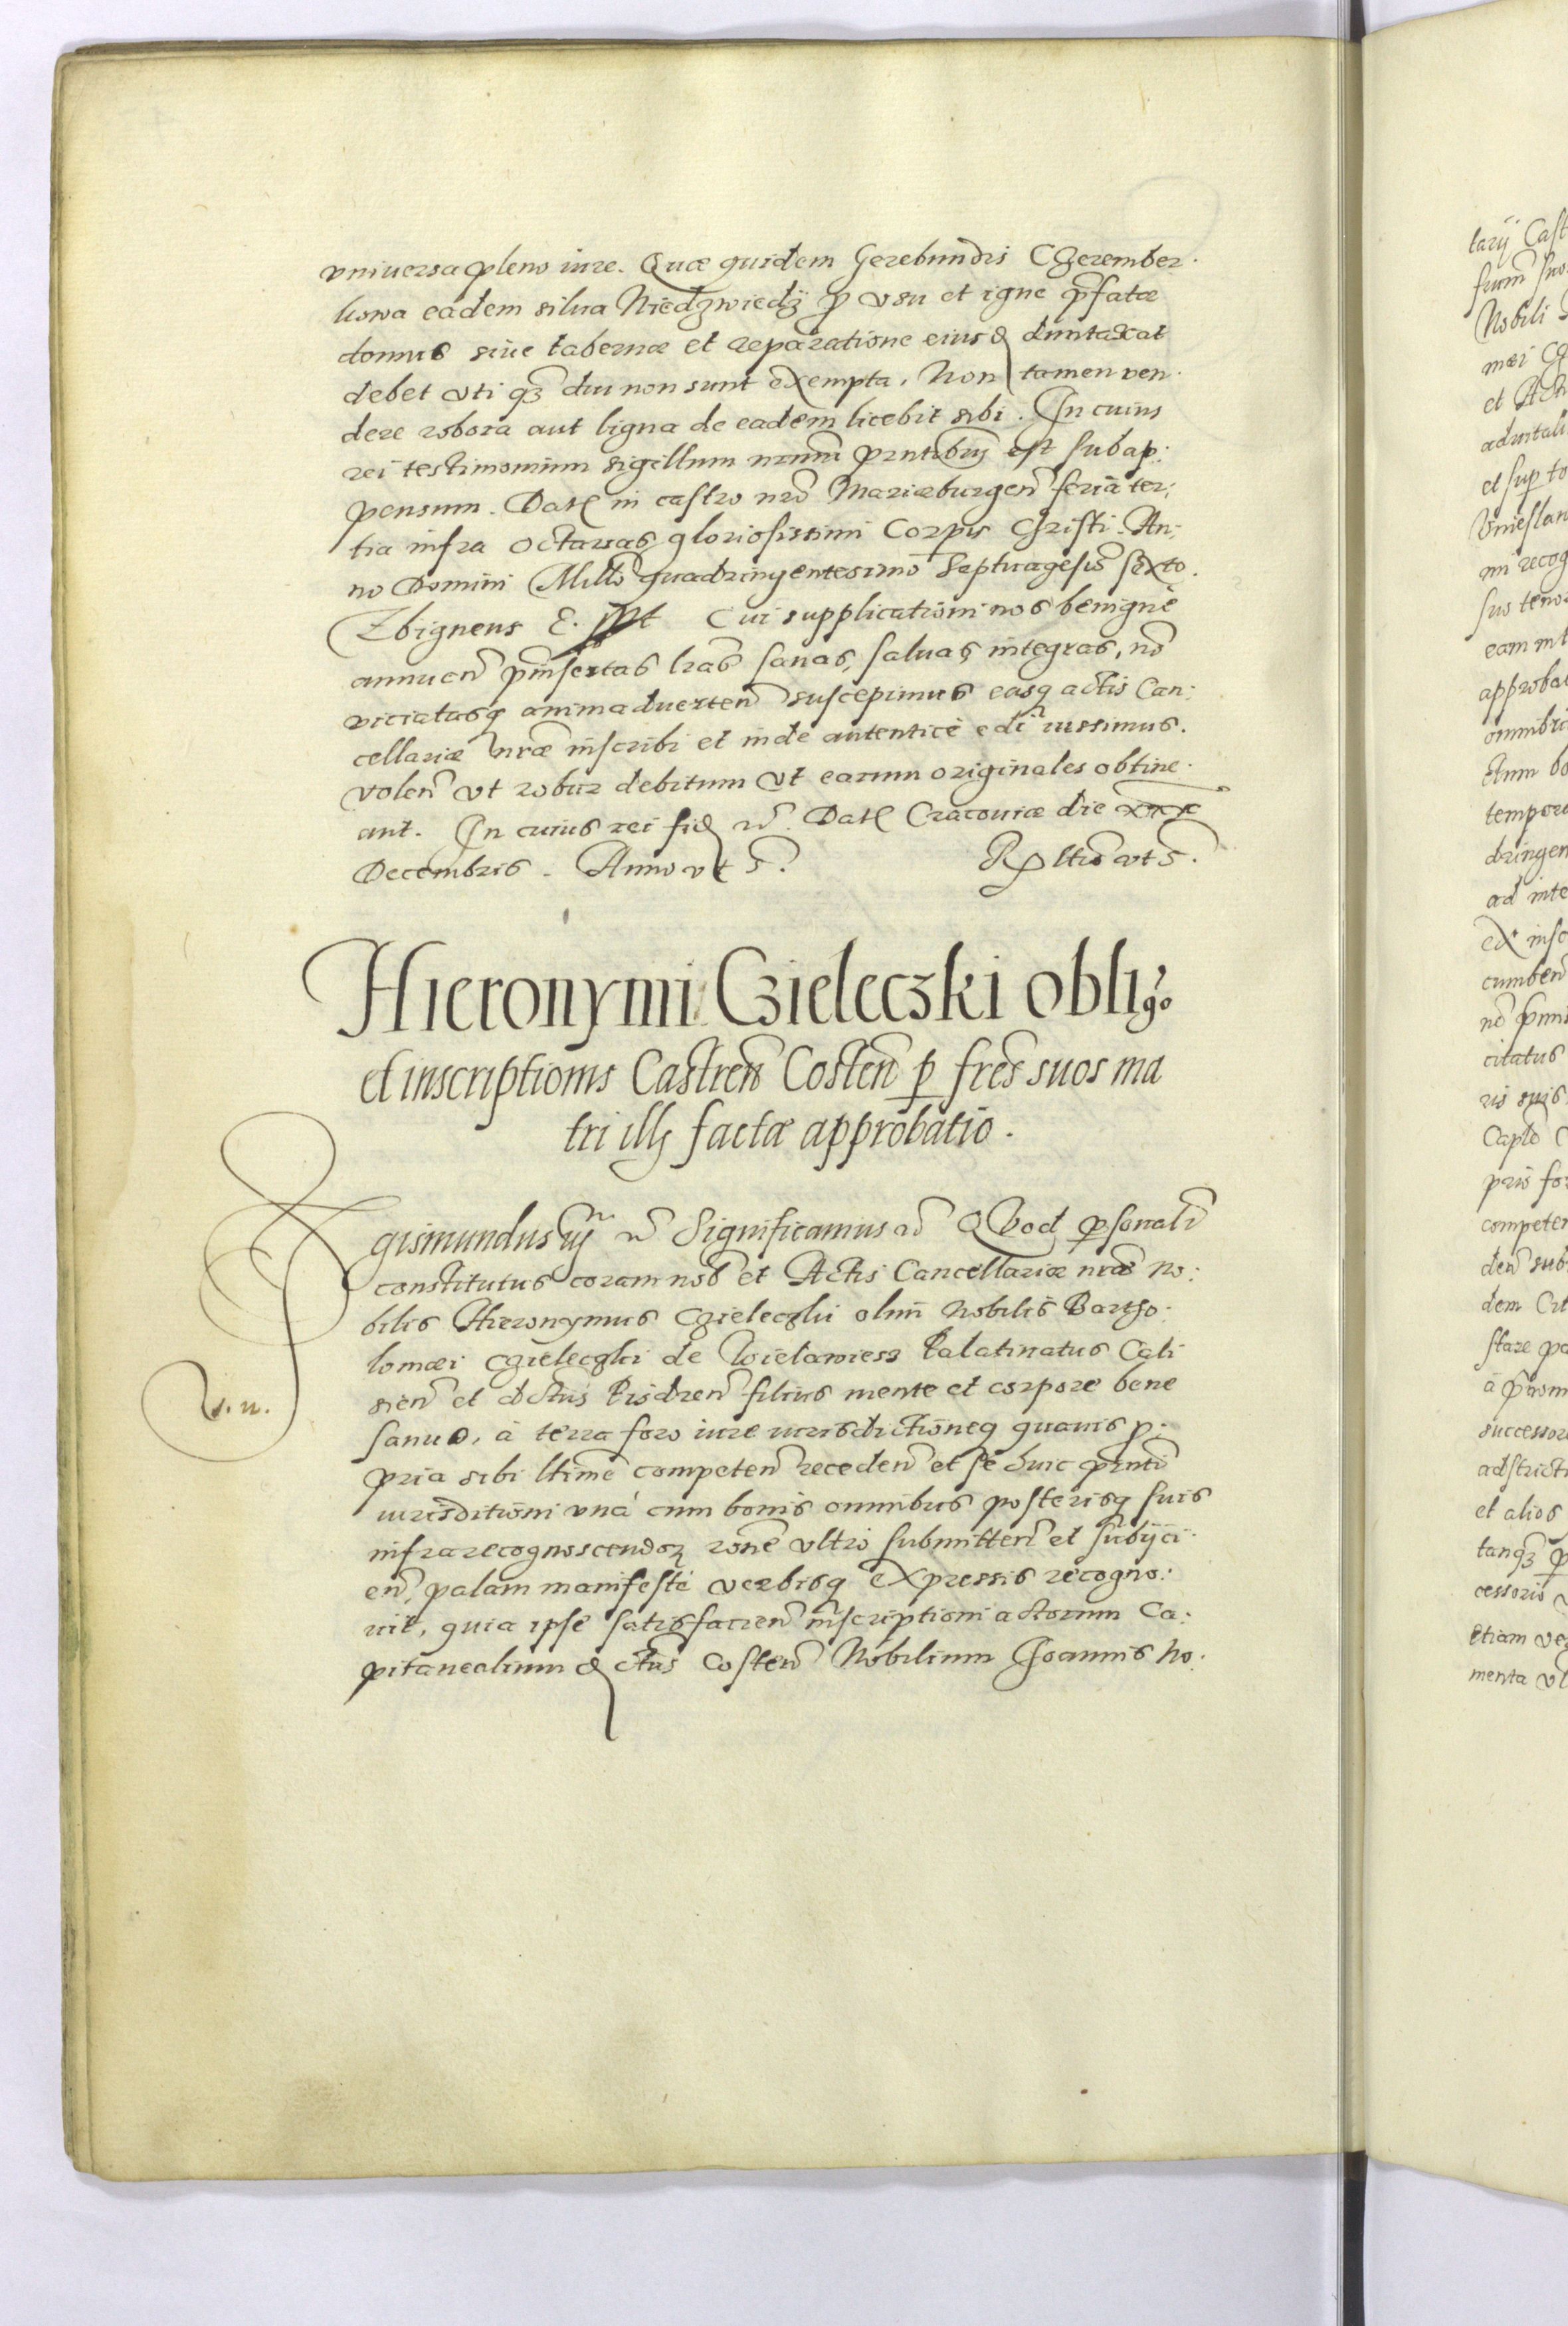 vniuersa pleno iure. Quæ quidem Gerebundis Czerember.
kowa eadem silua Niedzwiedz p vsu et igne pfatæ
domus siue tabernæ et reparatione eiusd duntaxat
debet vti qz diu non sunt exempta. Non tamen ven.
dere robora aut ligna de eadem licebit sibi. In cuius
rei testimonium sigillum nrum pntibus est subap:
pensum. Dat in castro nro Mariæburgen feria ter:
tia infra octauas gloriosissimi Corpis Christi. An:
no Domini Millo quadringentesimo Septuagesio sexto.
Zbigneus E. sspt Cui supplicationi nos benignè
annuen pinsertas lras sanas, saluas, integras, no
viciatasq animaduerten suscepimus easq actis Can:
cellariæ nræ inscribi et inde autenticè edi iussimus.
volen vt robur debitum vt earum originales obtine.
ant. In cuius rei fid etc. Dat Cracouiæ die xxx
Decembris. Anno vt s. Rltio vt s.
Hieronymi Czieleczki oblig.o
et inscriptionis Castren Costen p fres suos ma
tri illi factæ approbatio.
Sigismundus iij etc Significamus etc Quod psonalr
constitutus coram nob et Actis Cancellariæ nræ no:
bilis Hieronymus Czieleczki olim Nobilis Bartho:
lomæi Czieleczki de Wielawiess Palatinatus Cali
sien et dctus Pisdren filius mente et corpore bene
sanus, à terra foro iure iurisdictioneq quauis p:
pria sibi ltime competen receden et se huic pnti
iurisditioni vnà cum bonis omnibus posterisq suis
infra recognoscendor rone vltrò submitten et subijci.
en, palam manifestè verbisq expressis recogno:
uit, quia ipse satisfacien inscriptioni actorum Ca:
pitanealium dctus Costen Nobilium Joannis No:
V. n.